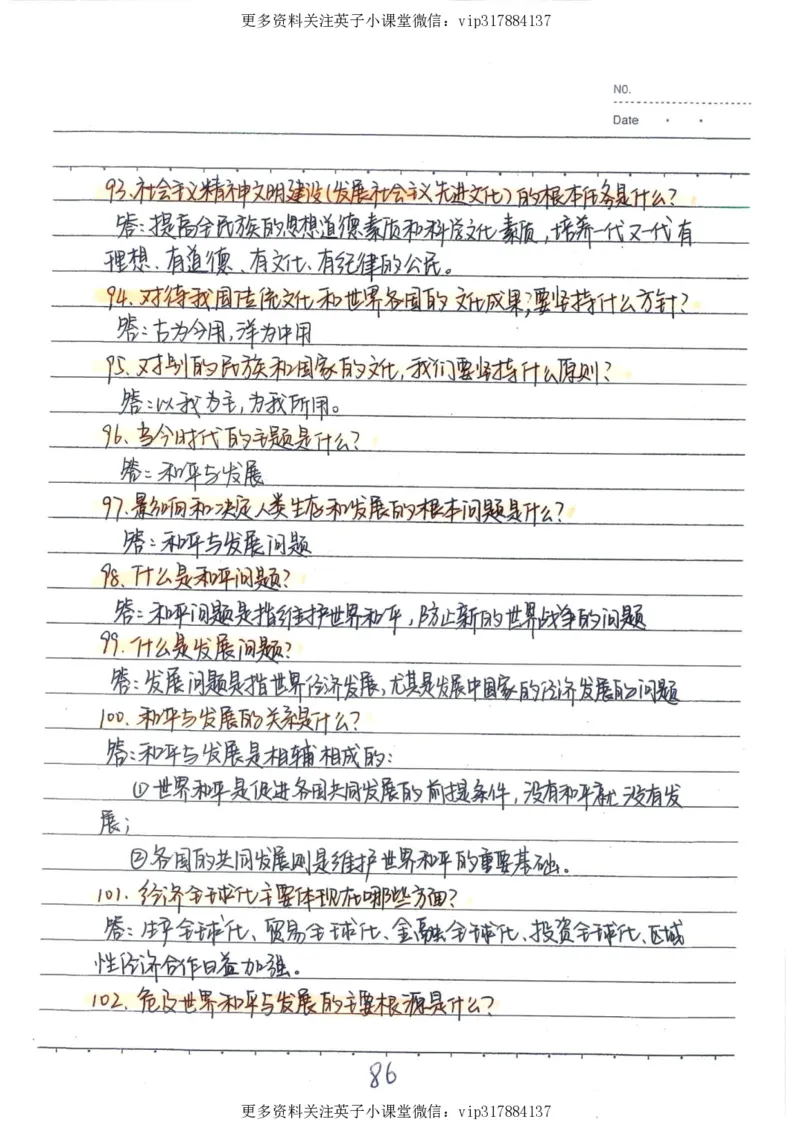 更多资料关注英子小课堂微信：vip317884137
NO.
Date
93.社会主义精神文明建设(发展社会主义先进文化)的根本任务是什么?
答:提高全民族的思想道德素质和科学文化素质,培养一代又一代有
理想、有道德、有文化、有纪律的公民。
94.对待我国传统文化和世界各国的文化成果,要坚持什么方针?
答:古为今用,洋为中用
95.对别的民族和国家的文化,我们要坚持什么原则?
答:以我为主,为我所用。
96.当今时代的主题是什么?
答:和平与发展
97.影响和决定人类生存和发展的根本问题是什么?
答:和平与发展问题
98.什么是和平问题?
答:和平问题是指维护世界和平,防止新的世界战争的问题
99.什么是发展问题?
答:发展问题是指世界经济发展,尤其是发展中国家的经济发展的问题
100.和平与发展的关系是什么?
答:和平与发展是相辅相成的:
①世界和平是促进各国共同发展的前提条件,没有和平就没有发
展;
②各国的共同发展则是维护世界和平的重要基础。
101.经济全球化主要体现在哪些方面?
答:生产全球化、贸易全球化、金融全球化、投资全球化、区域
性经济合作日益加强。
102.危及世界和平与发展的主要根源是什么?
86
更多资料关注英子小课堂微信：vip317884137